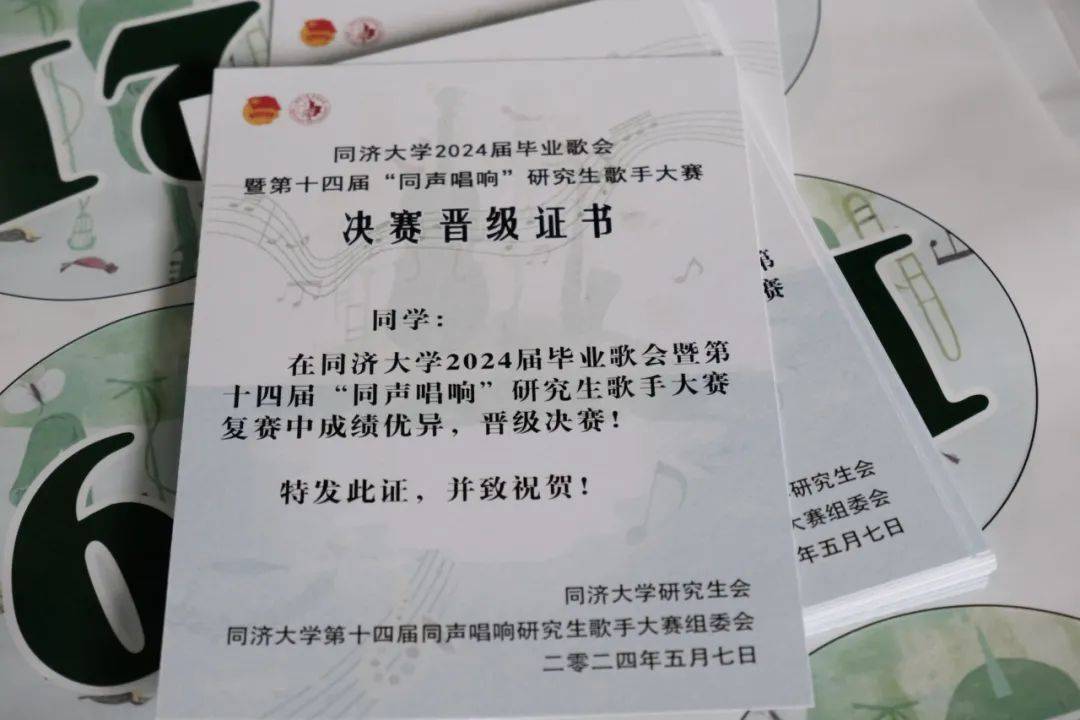 同济大学2024届毕业歌会
暨第十四届“同声唱响”研究生歌手大赛
决赛晋级证书
同学：
在同济大学2024届毕业歌会暨第
十四届“同声唱响”研究生歌手大赛
复赛中成绩优异，晋级决赛！
特发此证，并致祝贺！
同济大学研究生会
同济大学第十四届同声唱响研究生歌手大赛组委会
二零二四年五月七日
第
赛
研究生会
大赛组委会
年五月七日
17
6
1